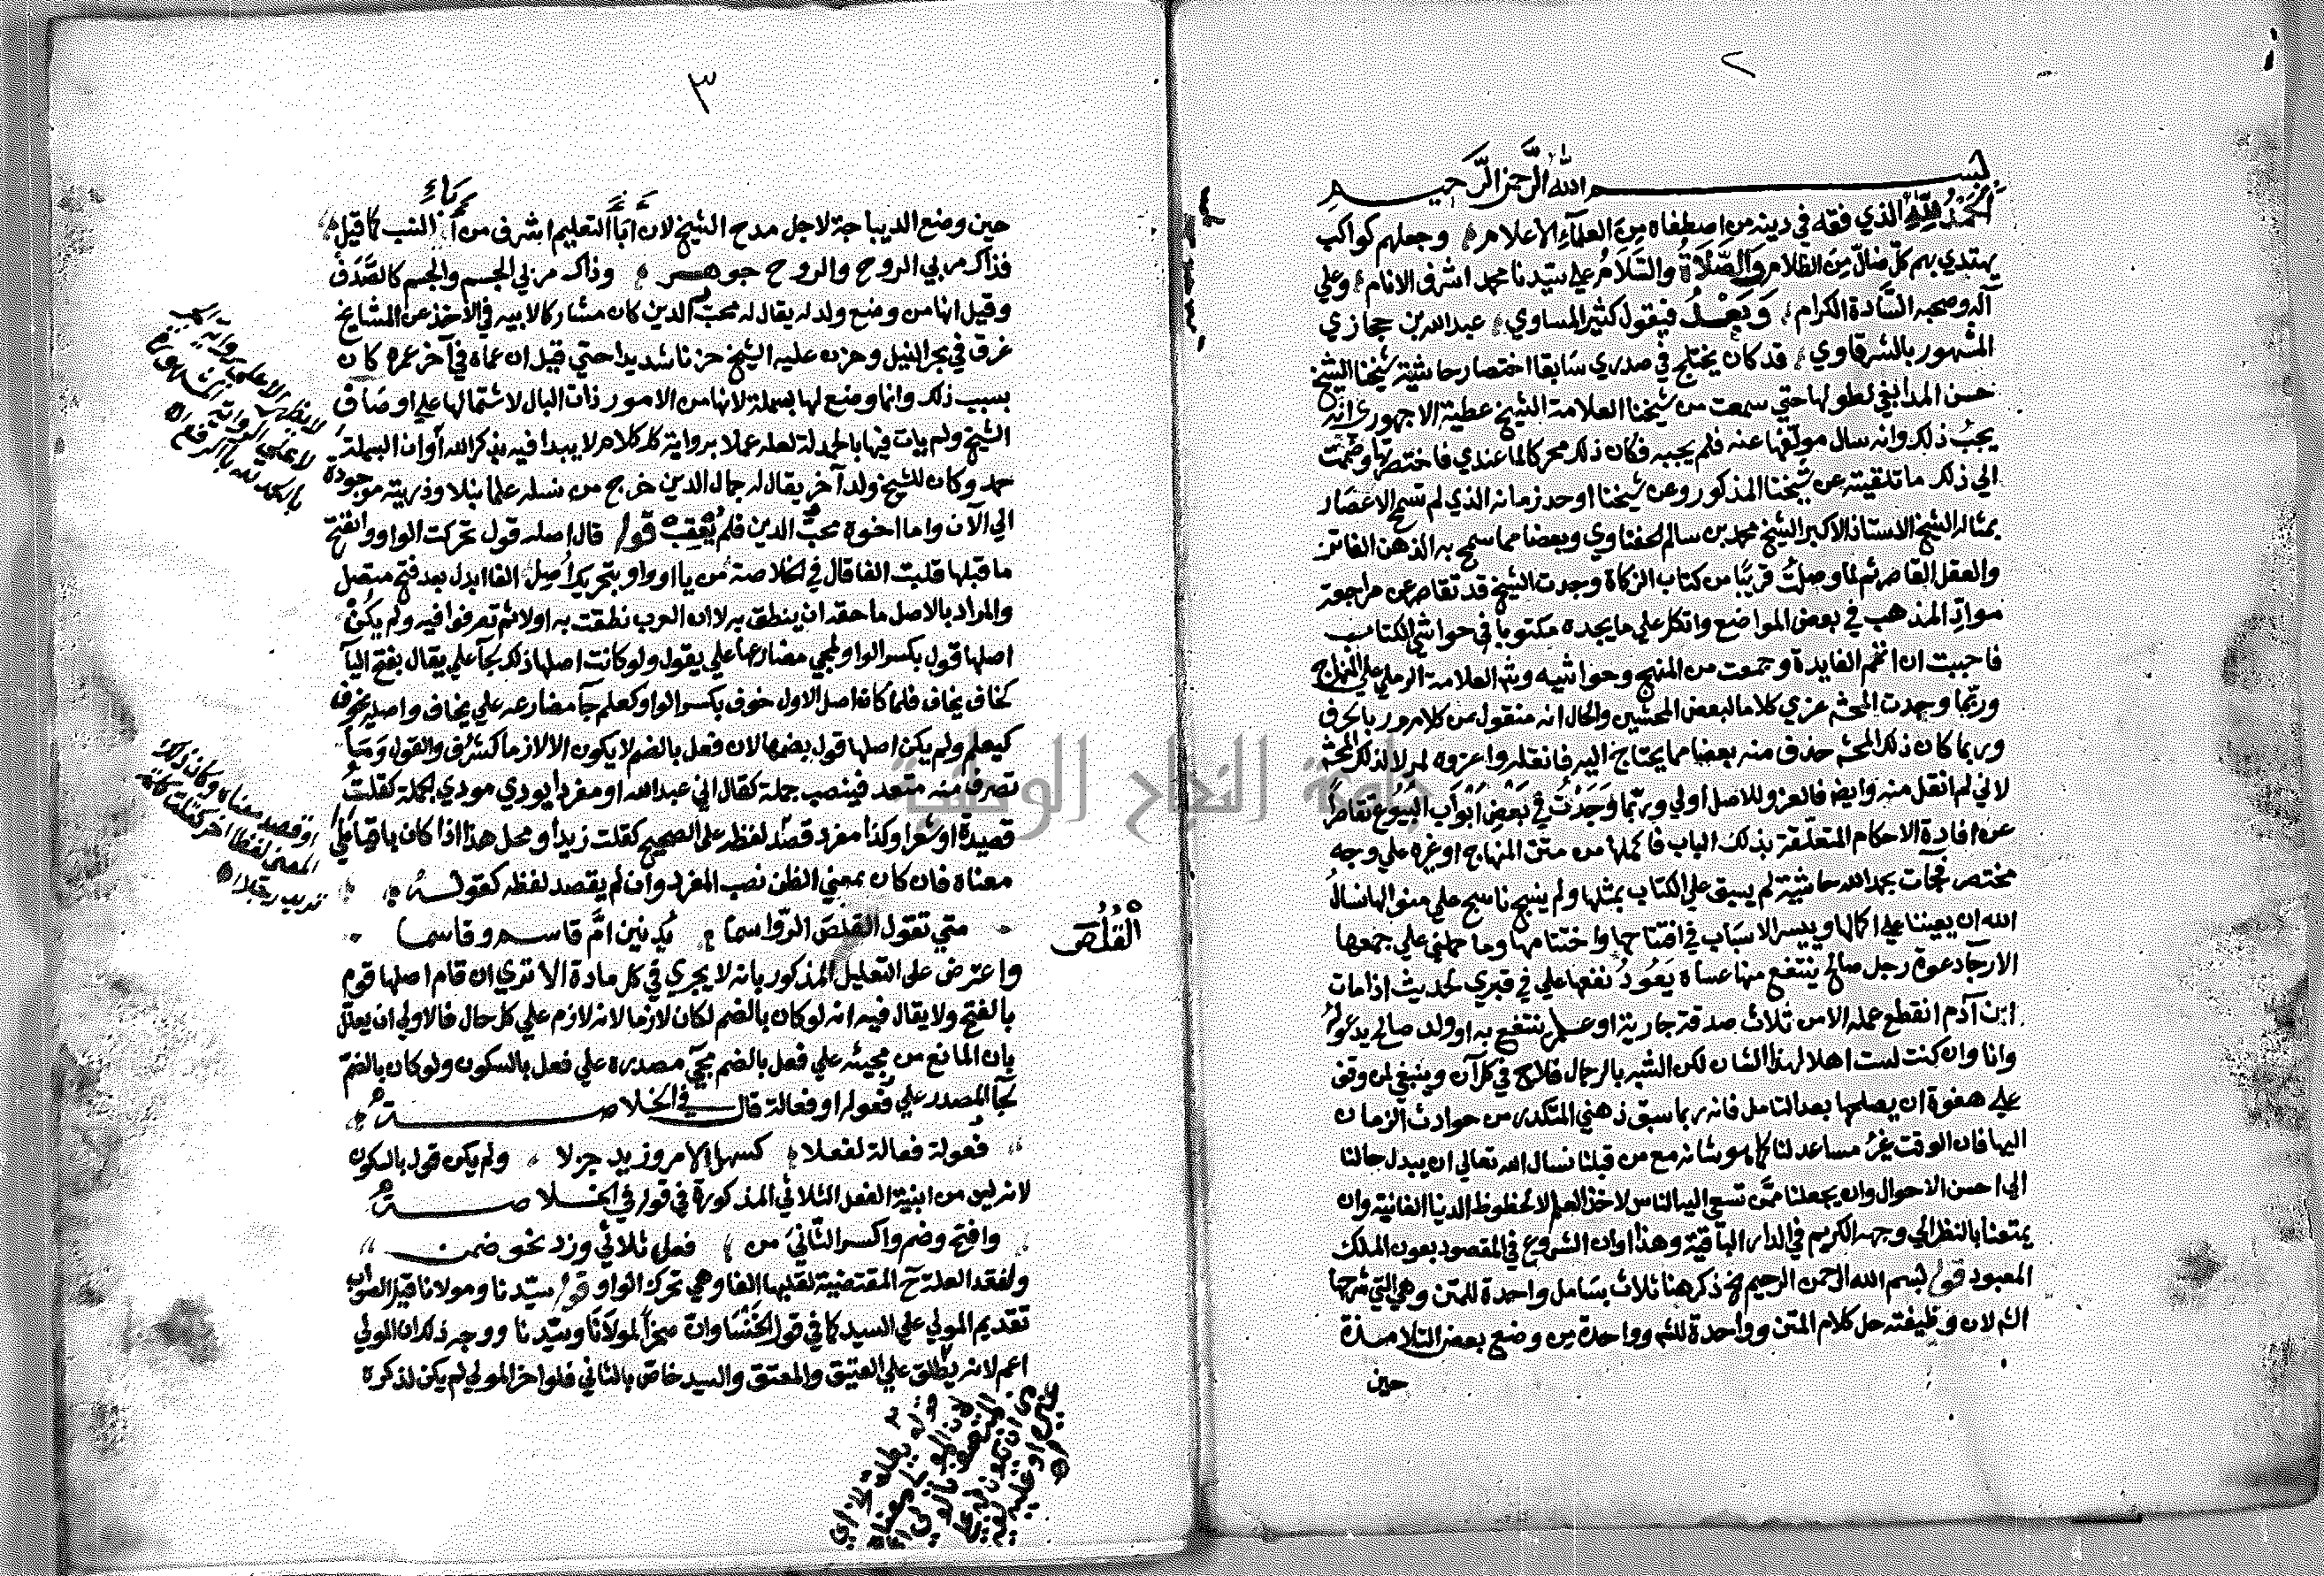 ٢
بسم الله الرحمن الرحيم
الحمد لله الذي فقه في دينه من اصطفاه من العلماء الأعلام وجعلهم كواكب
يهتدي بهم كل ضال من الظلام والصلاة والسلام على سيدنا محمد اشرف الانام وعلي
آله وصحبه السادة الكرام وبعد فيقول كثير المساوي عبدالله بن حجازي
المشهور بالشرقاوي قد كان يختلج في صدري سابقا اختصار حاشية شيخنا الشيخ
حسن المدابغي لطولها حتي سمعت من شيخنا العلامة الشيخ عطية الاجهوري انه
يجب ذلك وانه سال مولفها عنه فلم يجبه فكان ذلك محركا لما عندي فاختصرتها وضممت
الي ذلك ما تلقيته عن شيخنا المذكور وعن شيخنا اوحد زمانه الذي لم تسمح الاعصار
بمثاله الشيخ الاستاذ الاكبر الشيخ محمد بن سالم الحفناوي وبعضا مما سمح به الذهن الفاتر
والعقل القاصر ثم لما وصلت قريبا من كتاب الزكاة وجدت الشيخ قد تقاصر عن مراجعة
مواد المذهب في بعض المواضع واتكل علي ما يجده مكتوبا في حواشي الكتاب
فاحببت ان اتمم الفايدة وجمعت من المنهج وحواشيه وشرح العلامة الرملي علي المنهاج
وربما وجدت المحشي عزي كلاما لبعض المحشين والحال انه منقول من كلام م ر بالحرف
وربما كان ذلك المحشي حذف منه بعضا مما يحتاج اليه فانقله واعزوه لم ر لا لذلك المحشي
لاني لم انقل منه وايضا فالعزو للاصل اولي وربما وجدت في بعض ابواب البيوع تقاصرا
عن افادة الاحكام المتعلقة بذلك الباب فاكملها من متن المنهاج او غيره علي وجه
مختصر فجآت بحمد الله حاشية لم يسبق علي الكتاب بمثلها ولم ينسج ناسج علي منوالها نسال
الله ان يعيننا علي اكمالها وييسر الاسباب في افتتاحها واختتامها وما حملني علي جمعها
الا رجآ دعوة رجل صالح ينتفع منها عساه يعود نفعها علي في قبري لحديث اذا مات
ابن آدم انقطع عمله الا من ثلاث صدقة جارية او علم ينتفع به او ولد صالح يدعو له
وانا وان كنت لست اهلا لهذا الشان لكن الشبه بالرجال فلاح في كل آن وينبغي لمن وقف
على هفوة ان يصلحها بعد التامل فانه ربما سبق ذهني المتكدر من حوادث الزمان
اليها فان الوقت غير مساعد لنا كما هو شانه مع من قبلنا نسال الله تعالي ان يبدل حالنا
الي احسن الاحوال وان يجعلنا ممن تسعي اليه الناس لاخذ العلم لا لحظوظ الدنيا الفانية وان
يمتعنا بالنظر الي وجهه الكريم في الدار الباقية وهذا اوان الشروع في المقصود بعون الملك
المعبود قوله بسم الله الرحمن الرحيم الخ ذكر هنا ثلاث بسامل واحدة للمتن وهي التي شرحها
الش لان وظيفته حل كلام المتن وواحدة للش وواحدة من وضع بعض التلامذة
حين
٣
حين وضع الديباجة لاجل مدح الشيخ لان آباآ التعليم اشرف من آباء النسب كما قيل
فذاك مربي الروح والروح جوهر وذاك مربي الجسم والجسم كالصدف
وقيل انها من وضع ولد له يقال له محب الدين كان مشاركا لابيه في الاخذ عن المشايخ
غرق في بحر النيل وحزن عليه الشيخ حزنا شديدا حتي قيل ان عماه في آخر عمره كان
بسبب ذلك وانما وضع لها بسملة لانها من الامور ذات البال لاشتمالها علي اوصاف
الشيخ ولم يات فيها بالحمدلة لعله عملا برواية كل كلام لا يبدا فيه بذكر الله او ان البسملة
حمد وكان للشيخ ولد آخر يقال له جمال الدين خرج من نسله علما نبلا وذريته موجودة
الي الآن واما اخوه محب الدين فلم يعقب قوله قال اصله قول تحركت الواو وانفتح
ما قبلها قلبت الفا قال في الخلاصة من يا او واو بتحريك اصل الفا ابدل بعد فتح متصل
والمراد بالاصل ما حقه ان ينطق به لا ان العرب نطقت به اولا ثم تصرفوا فيه ولم يكن
اصلها قول بكسر الواو لمجي مضارعها علي يقول ولو كانت اصلها ذلك لجآ علي يقال بفتح اليآ
كخاف يخاف فلما كان اصل الاول خوف بكسر الواو كعلم جآ مضارعه علي يخاف واصله يخوف
كيعلم ولم يكن اصلها قول بضمها لان فعل بالضم لا يكون الا لازما كشرف والقول وما
تصرف منه متعد فينصب جملة كقال اني عبدالله او مفردا يودي مودي الجملة كقلت
قصيدة او شعرا وكذا مفرد قصد لفظه على الصحيح كقلت زيدا ومحل هذا اذا كان باقيا علي
معناه فان كان بمعني الظن نصب المفرد وان لم يقصد لفظه كقوله
متي تقول القلص الرواسما يدنين ام قاسم وقاسما
القلص
واعترض على التعليل المذكور بانه لا يجري في كل مادة الا تري ان قام اصلها قوم
بالفتح ولا يقال فيه انه لو كان بالضم لكان لازما لانه لازم علي كل حال فالاولي ان يعلل
بان المانع من مجيئه علي فعل بالضم مجي مصدره علي فعل بالسكون ولو كان بالضم
لجآ المصدر علي فعولة او فعالة قال في الخلاصة
فعولة فعالة لفعلا كسهل الامر وزيد جزلا ولم يكن قول بالسكون
لانه ليس من ابنية الفعل الثلاثي المذكورة في قوله في الخلاصة
وافتح وضم واكسر الثاني من فعل ثلاثي وزد نحو ضمن
ولفقد العلة ح المقتضية لقلبها الفا وهي تحرك الواو قوله سيدنا ومولانا قيل الصواب
تقديم المولي علي السيد كما في قول الخنسا وان صخرا لمولانا وسيدنا ووجه ذلك ان المولي
اعم لانه يطلق علي العتيق والمعتق والسيد خاص بالثاني فلو اخر المولي لم يكن لذكره
جامعة النجاح الوطنية